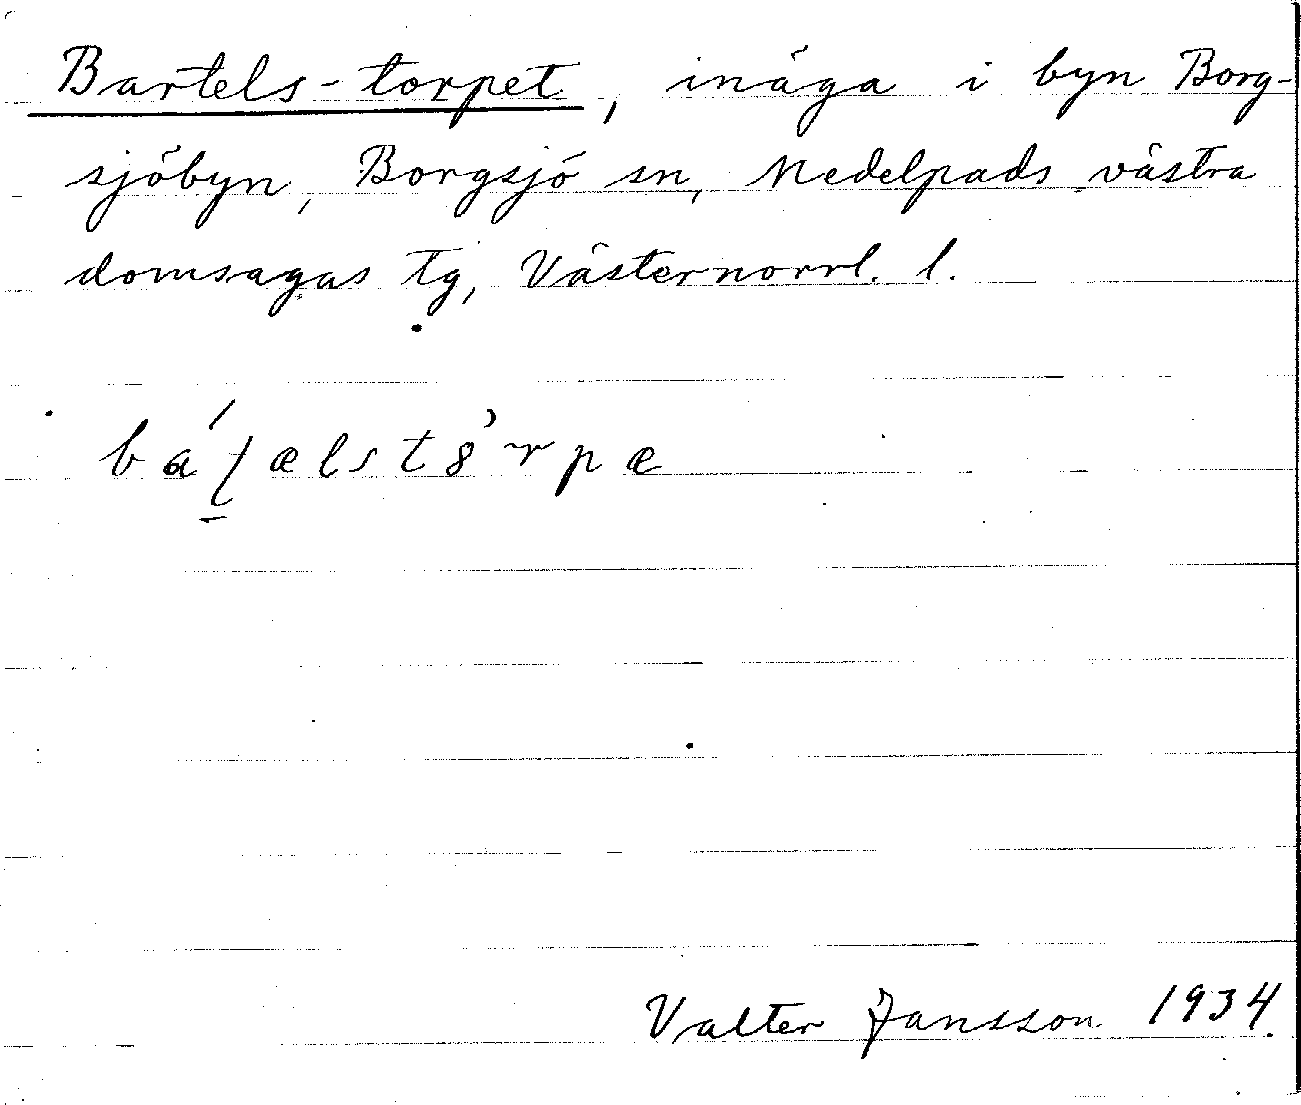 Bartels-torpet, inäga i byn Borg-
sjöbyn, Borgsjö sn, Medelpads västra
domsagas tg, Västernorrl. l.
Valter Jansson 1934.